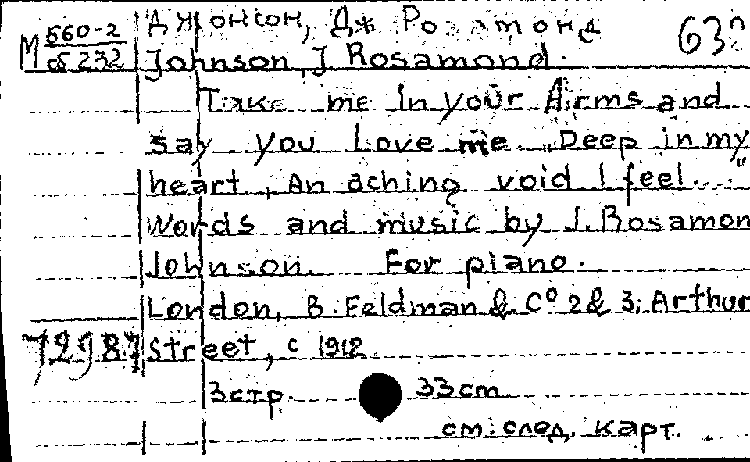 Джонсон, Дж Розамонд 63
М 560-2
Об 232
Johnson, J. Rosamond.
Take me in your Arms and
say you Love me. Deep in my
heart, An aching void I feel...."
Words and music by J. Rosamon
Johnson. For piano.
London, B. Feldman & Cº 2 & 3; Arthur
72987 Street, c 1912
3стр. 33cm
см. след. карт.